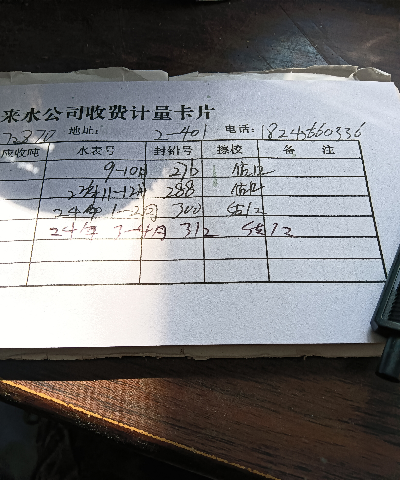 来水公司收费计量卡片
72870 地址: 2-401 电话: 18245660336
应收吨 水表号 封铅号 接收 备注
9-10月 276 估12
22年11-12月 288 估12
24年1-2月 300 估12
24年 3-4月 312 估12